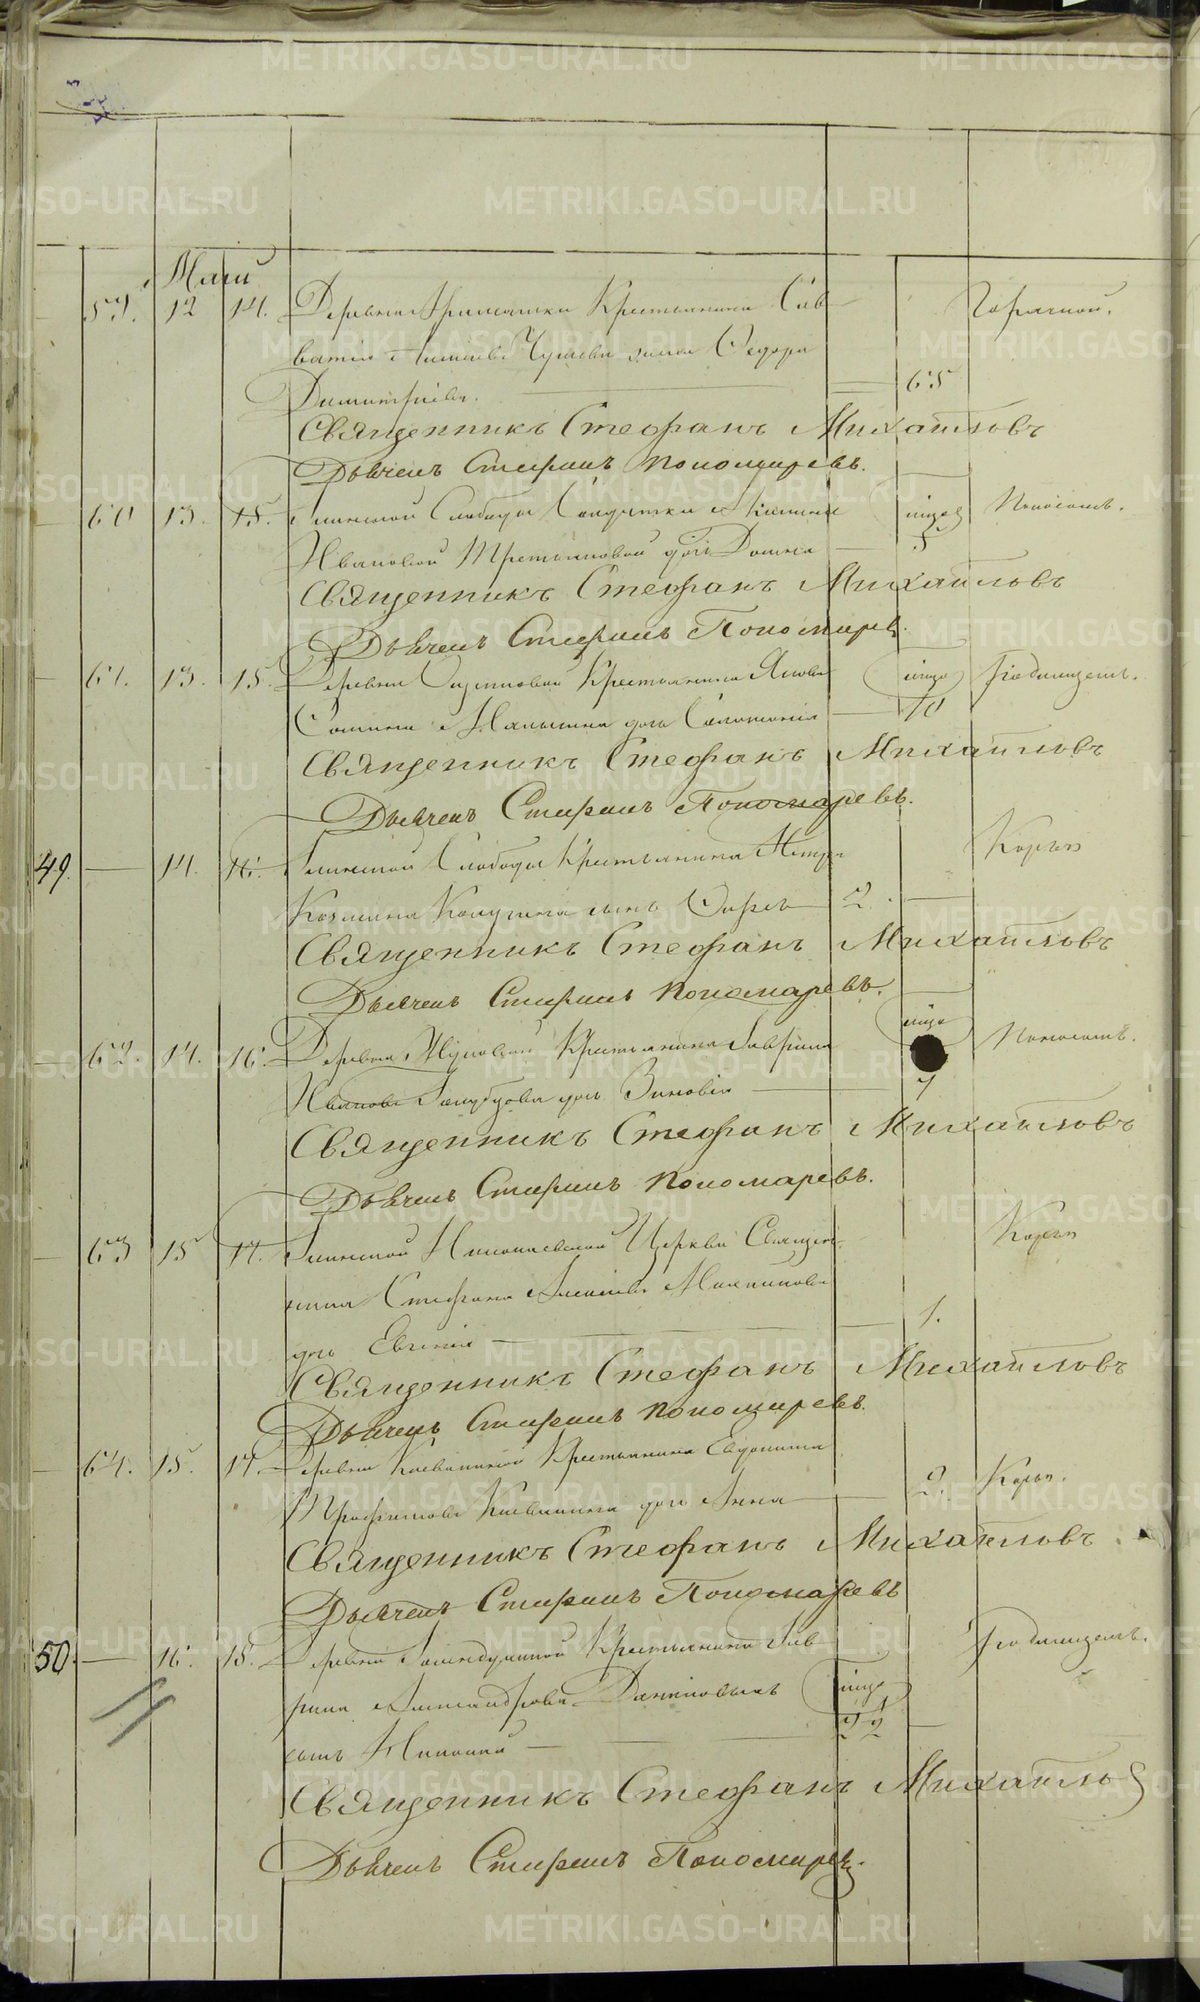 Маiи
59. 12 14. Деревни Крестьянина Сав
ватiя Чущева жена Ѳедора
Димитрiева. 65 Горячкой.
Священникъ Стефанъ Михайловъ
Дьячекъ Стефанъ Пономаревъ.
60 13. 15. Глинской Слободы Солдатки Акилины
Ивановой Третьяковой дочь Домна 5 Поносомъ.
Священникъ Стефанъ Михайловъ
Дьячекъ Стефанъ Пономаревъ.
61. 13. 15. Деревни Крестьянина Якова
Сомина Малыгина дочь Соломонiя 10 Родимцемъ.
Священникъ Стефанъ Михайловъ
Дьячекъ Стефанъ Пономаревъ.
49. — 14. 16. Глинской Слободы Крестьянина Петра
Козмина Колугина сынъ 2. Корью
Священникъ Стефанъ Михайловъ
Дьячекъ Стефанъ Пономаревъ.
62. 14. 16. Деревни Крестьянина Гаврила
Иванова Голубцова дочь Зиновiя 7 Поносомъ.
Священникъ Стефанъ Михайловъ
Дьячекъ Стефанъ Пономаревъ.
63 15 17. Глинской Николаевской Церкви Священ-
ника Стефана дочь Евгенiя 1. Корью
Священникъ Стефанъ Михайловъ
Дьячекъ Стефанъ Пономаревъ.
64. 15. 17. Деревни Крестьянина Евдокима
Трофимова дочь Анна 2. Корью.
Священникъ Стефанъ Михайловъ
Дьячекъ Стефанъ Пономаревъ
50. — 16. 18. Деревни Крестьянина Гав
рила Александрова Даниловыхъ
сынъ Николай Родимцемъ.
Священникъ Стефанъ Михайловъ
Дьячекъ Стефанъ Пономаревъ.
METRIKI.GASO-URAL.RU